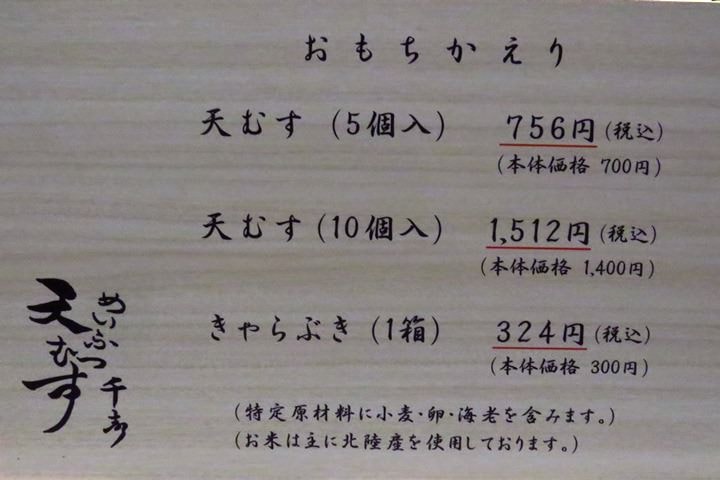 おもちかえり
天むす (5個入) 756円 (税込)
(本体価格 700円)
天むす (10個入) 1,512円 (税込)
(本体価格 1,400円)
きゃらぶき (1箱) 324円 (税込)
(本体価格 300円)
(特定原材料に小麦・卵・海老を含みます。)
(お米は主に北陸産を使用しております。)
めいふつ
天むす
千寿